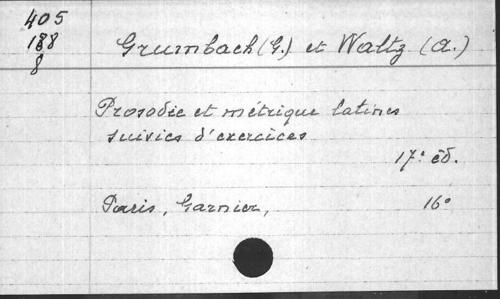 405
188
8
Grumbach (G.) et Waltz (A.)
Prosodie et métrique latines
suivies d'exercices
17e éd.
Paris, Garnier, 16°